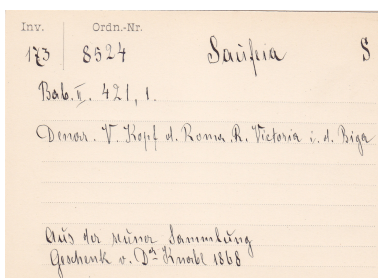 Inv. Ordn.-Nr.
173 8524 Saufeia S
Bab. II. 421, 1.
Denar. V. Kopf d. Roma. R. Victoria i. d. Biga
Aus der Sammlung
Geschenk v. Dr Knabl 1868